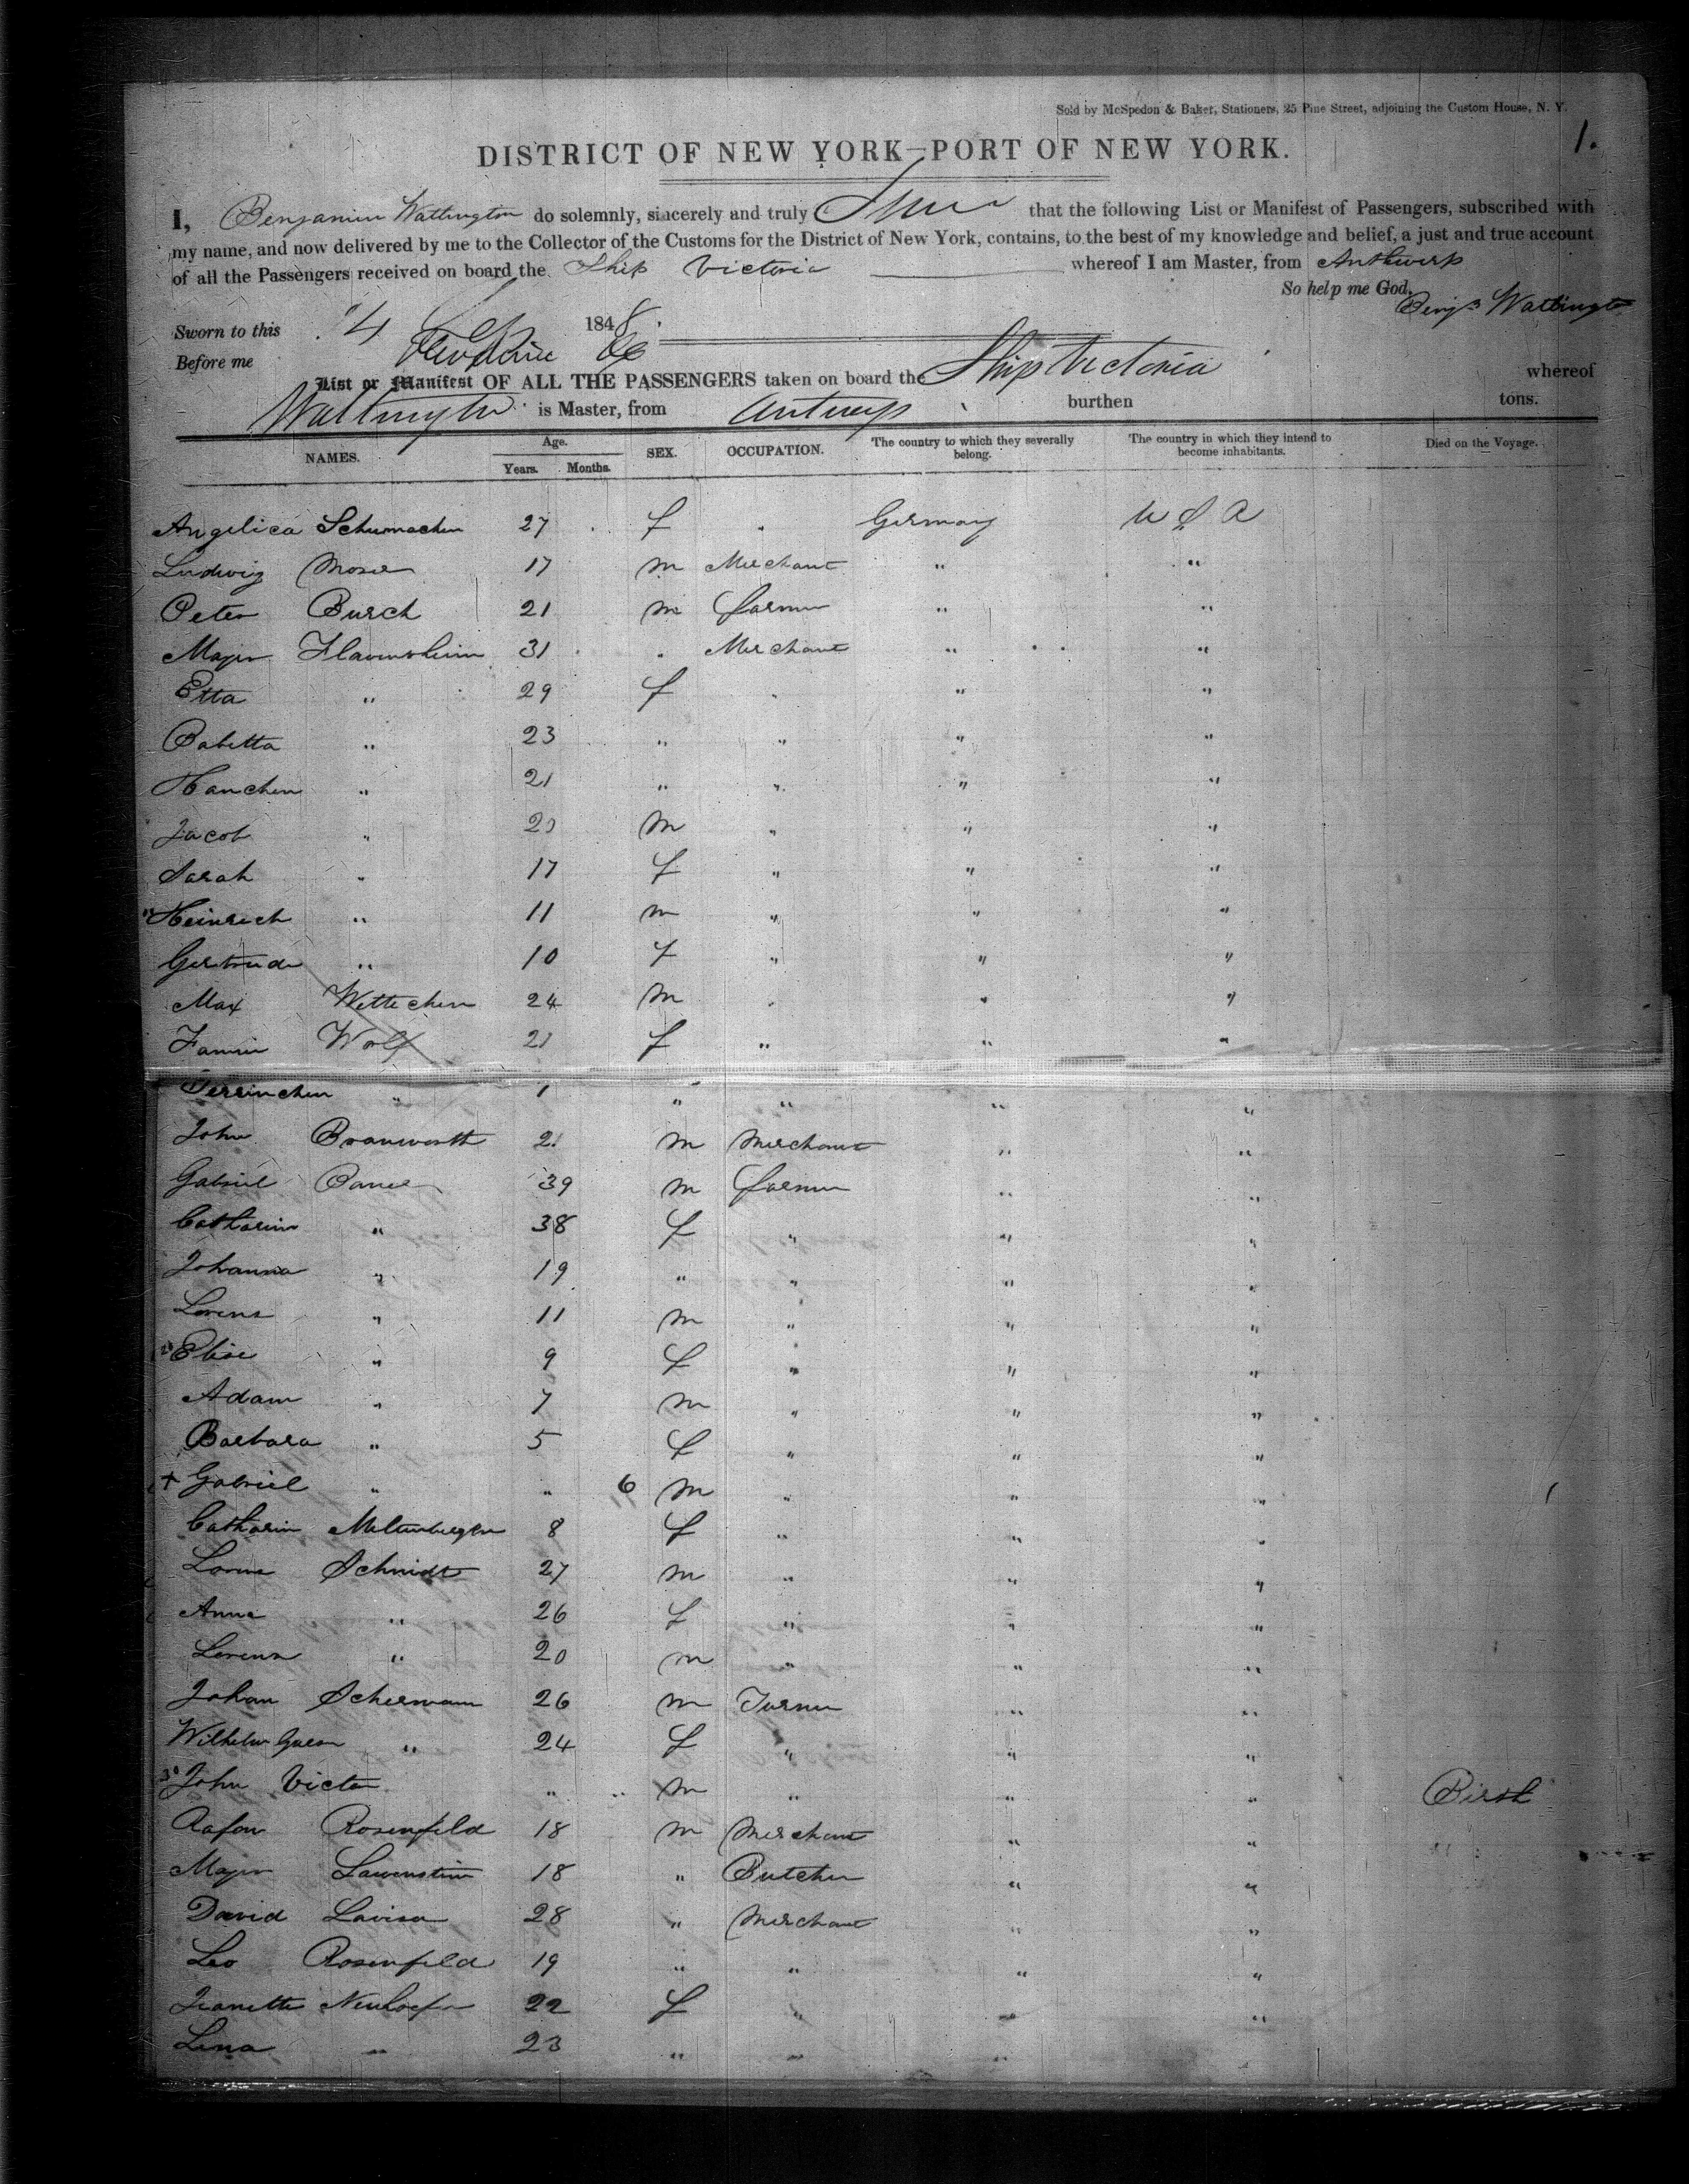 Sold by McSpedon & Baker, Stationers, 25 Pine Street, adjoining the Custom House, N. Y.
1.
DISTRICT OF NEW YORK—PORT OF NEW YORK.
I, Benjamin Wattington do solemnly, sincerely and truly that the following List or Manifest of Passengers, subscribed with
my name, and now delivered by me to the Collector of the Customs for the District of New York, contains, to the best of my knowledge and belief, a just and true account
of all the Passengers received on board the Ship Victoria whereof I am Master, from Anthwerp
So help me God.
Benj. Wattington
Sworn to this 4 1848
Before me
List or Manifest OF ALL THE PASSENGERS taken on board the Ship Victoria whereof
Wattington is Master, from Antwerp burthen tons.
NAMES. Age. Years. Months. SEX. OCCUPATION. The country to which they severally belong. The country in which they intend to become inhabitants. Died on the Voyage.
Angelica Schumacher 27 f Germany U S A
Ludwig Moser 17 m Merchant " "
Peter Burch 21 m farmer " "
Major 31 " Merchant " "
Etta " 29 f " " "
Babetta " 23 " " " "
Hanchen " 21 " " " "
Jacob " m " " "
Sarah " 17 f " " "
Heinrich " 11 m " " "
Gertrude " 10 f " " "
Max 24 m " " "
Fannie Wolf 21 f " " "
" 1 " " " "
John m Merchant " "
Gabriel 39 m farmer " "
Catharin " 38 f " " "
Johanna " 19 " " " "
Lorens " 11 m " " "
Elise " 9 f " " "
Adam " 7 m " " "
Barbara " 5 f " " "
+ Gabriel " " 6 m " " "
Catharin 8 f " " "
Schmidt 27 m " " "
Anna " 26 f " " "
Lorens " 20 m " " "
Johan 26 m Turner " "
" 24 f " " "
30 John Victor " " m " " " Birth
Rosenfeld 18 m Merchant " "
Major Lawenstein 18 " Butcher " "
David 28 " Merchant " "
Leo Rosenfeld 19 " " " "
Jeanette 22 f " " "
Lina " 23 " " "